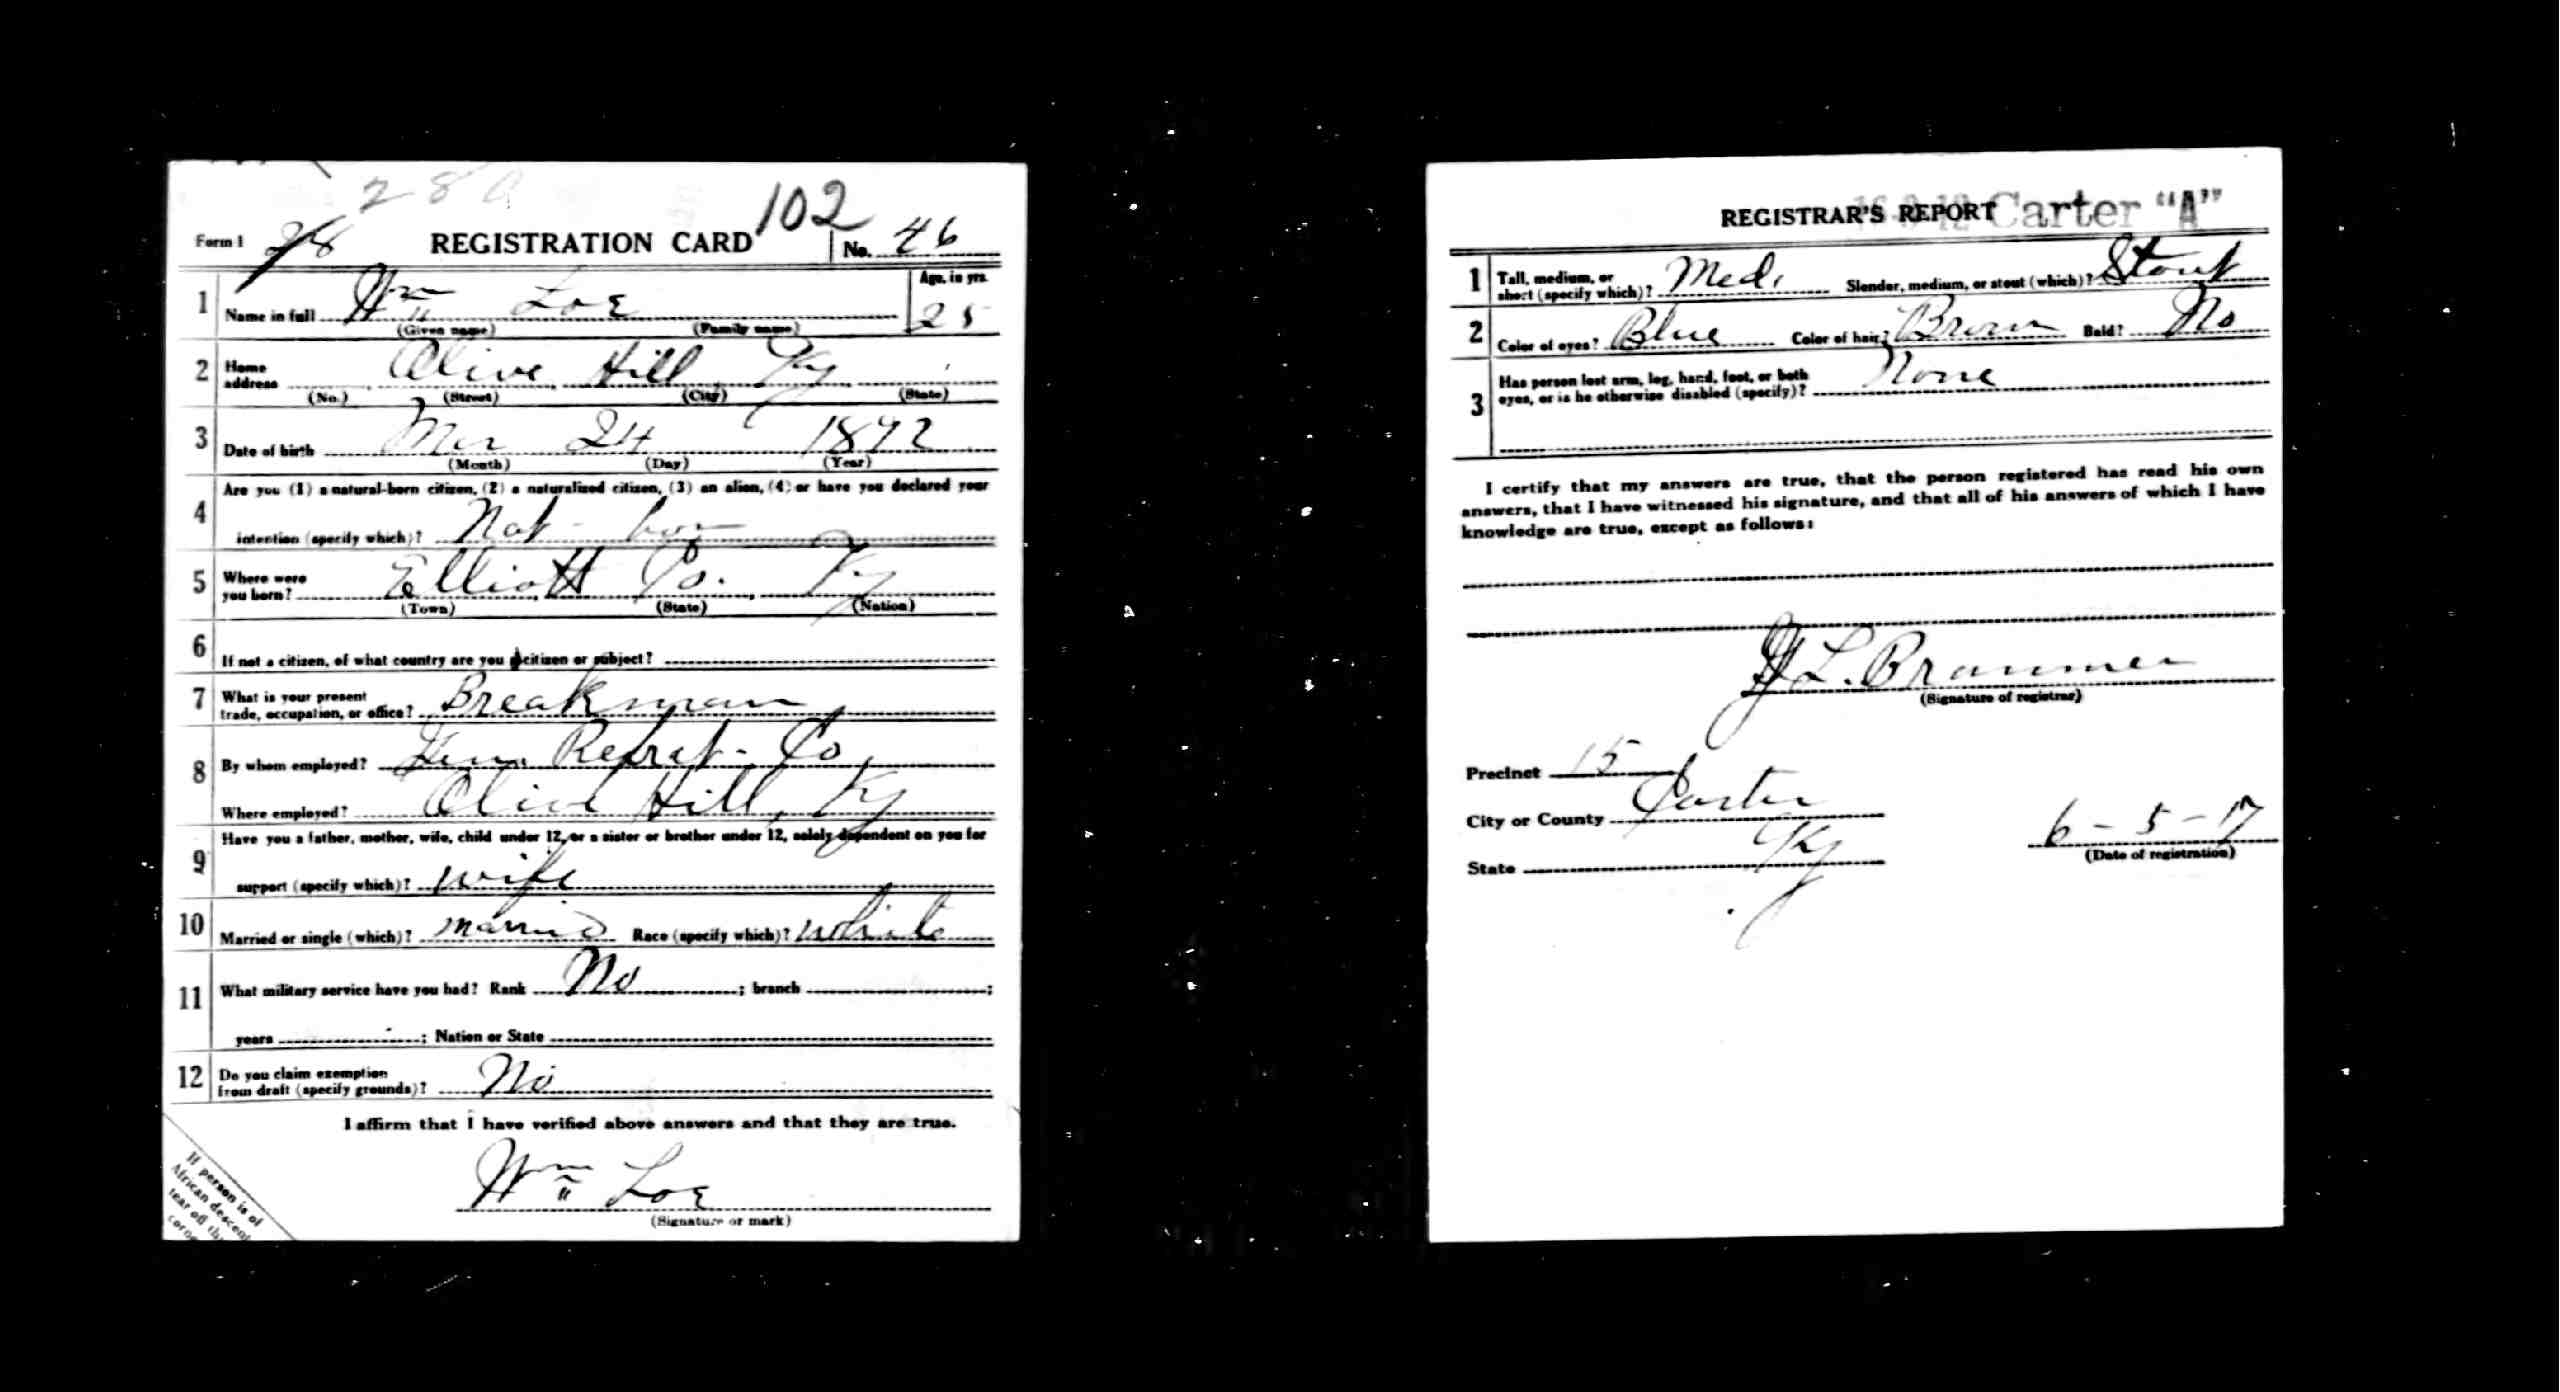 28
102
Form 1 28 REGISTRATION CARD No. 46
1 Name in full Wm Loe Age, in yrs. 25
(Given name) (Family name)
2 Home address Olive Hill Ky
(No.) (Street) (City) (State)
3 Date of birth Mar 24 1892
(Month) (Day) (Year)
4 Are you (1) a natural-born citizen, (2) a naturalized citizen, (3) an alien, (4) or have you declared your
intention (specify which)? Nat - bor
5 Where were you born? Elliott Co. Ky
(Town) (State) (Nation)
6 If not a citizen, of what country are you a citizen or subject?
7 What is your present trade, occupation, or office? Breakman
8 By whom employed? Refrat. Co
Where employed? Olive Hill, Ky
9 Have you a father, mother, wife, child under 12, or a sister or brother under 12, solely dependent on you for
support (specify which)? wife
10 Married or single (which)? married Race (specify which)? white
11 What military service have you had? Rank No ; branch ;
years ; Nation or State
12 Do you claim exemption from draft (specify grounds)? No
I affirm that I have verified above answers and that they are true.
Wm Loe
(Signature or mark)
If person is of
African descent
tear off this
corner
REGISTRAR'S REPORT Carter "A"
1 Tall, medium, or short (specify which)? Med. Slender, medium, or stout (which)? Stout
2 Color of eyes? Blue Color of hair? Brown Bald? No
3 Has person lost arm, leg, hand, foot, or both eyes, or is he otherwise disabled (specify)? None
I certify that my answers are true, that the person registered has read his own
answers, that I have witnessed his signature, and that all of his answers of which I have
knowledge are true, except as follows:
L. Brammer
(Signature of registrar)
Precinct 15
City or County Carter
State Ky
6 - 5 - 17
(Date of registration)